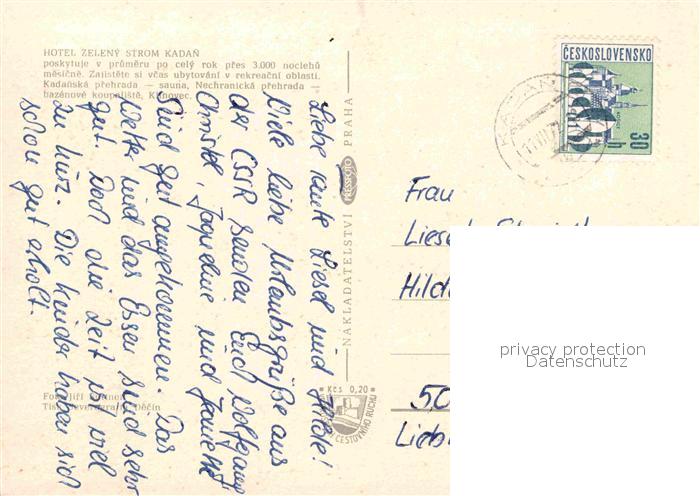 HOTEL ZELENÝ STROM KADAŇ
poskytuje v průměru po celý rok přes 3.000 noclehů
měsíčně. Zajistěte si včas ubytování v rekreační oblasti.
Kadaňská přehrada — sauna, Nechranická přehrada —
bazénové koupaliště, Klínovec.
Liebe Tante Liesel und
Viele liebe Urlaubsgrüße aus
der CSSR senden Euch Wolfgang
Christel, Jaqueline und Janette
Sind gut angekommen. Das
Wetter und das Essen sind sehr
gut. Doch die Zeit ist viel
zu kurz. Die Kinder haben sich
schon gut erholt.
Foto Jiří
Děčín
NAKLADATELSTVÍ PRESSFOTO PRAHA
Kčs 0,20
CESTOVNÍHO RUCHU
ČESKOSLOVENSKO
30 h
KADAŇ
Frau
Liesel
Hild
50
Lieb
privacy protection
Datenschutz